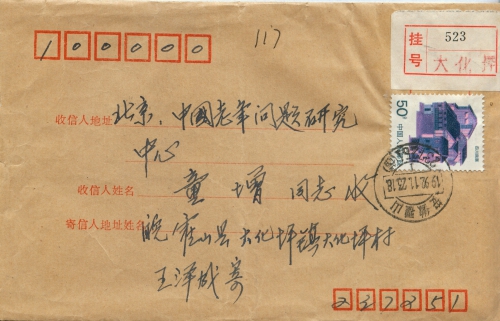 100000
117
挂号 523
大化坪
50分
中国人民邮政
收信人地址 北京:中国老年问题研究
中心
收信人姓名 童增 同志 收
寄信人地址姓名 皖霍山县大化坪镇大化坪村
王泽成寄
1992.11.23.18
237251